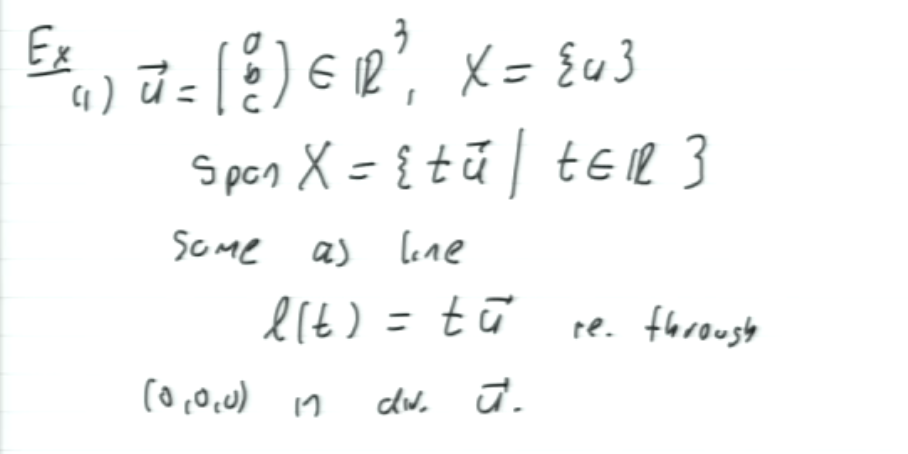 Ex
a) u⃗ = (a b c) ∈ ℝ³, X = {u}
span X = {t u⃗ | t ∈ ℝ}
same as line
l(t) = t u⃗ ie. through
(0,0,0) in dir. u⃗.